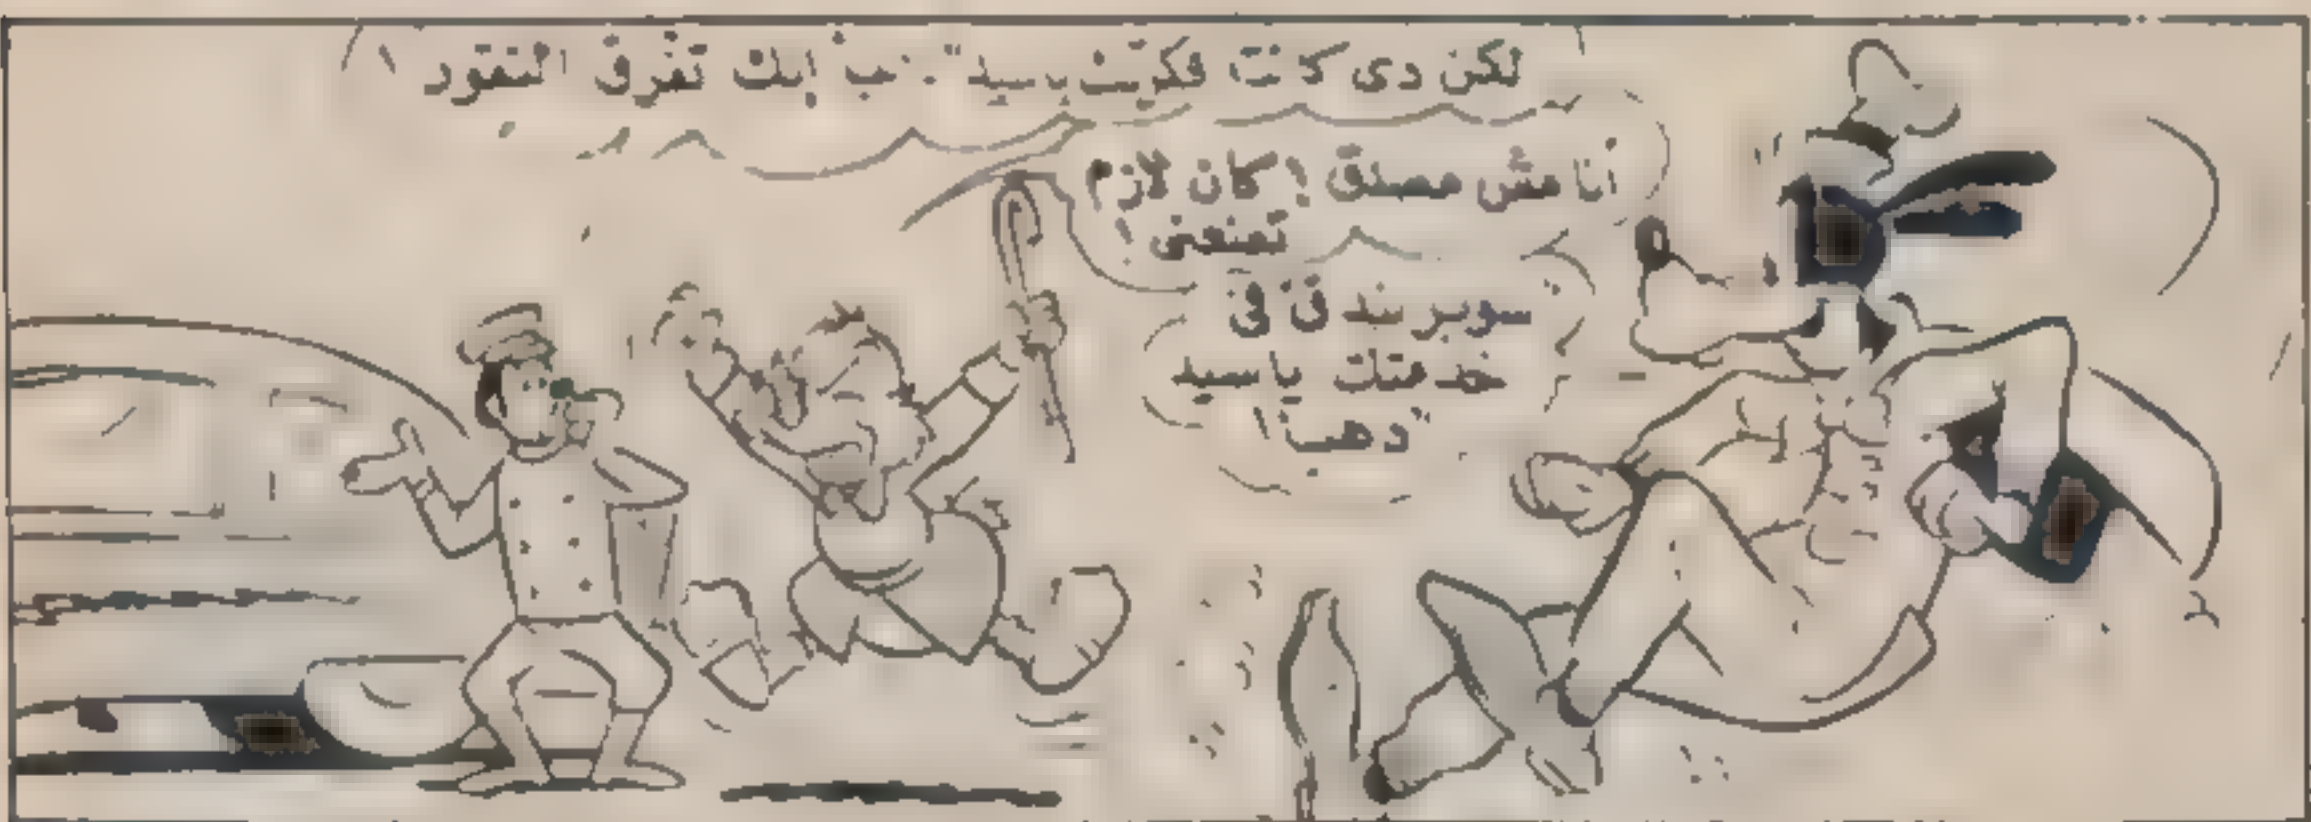 لكن دى كانت فكرتك يا سيد "دهب" إنك تفرق النقود !
أنا مش مصدق ! كان لازم
تمنعنى !
سوبر بندق فى
خدمتك يا سيد
"دهب" !